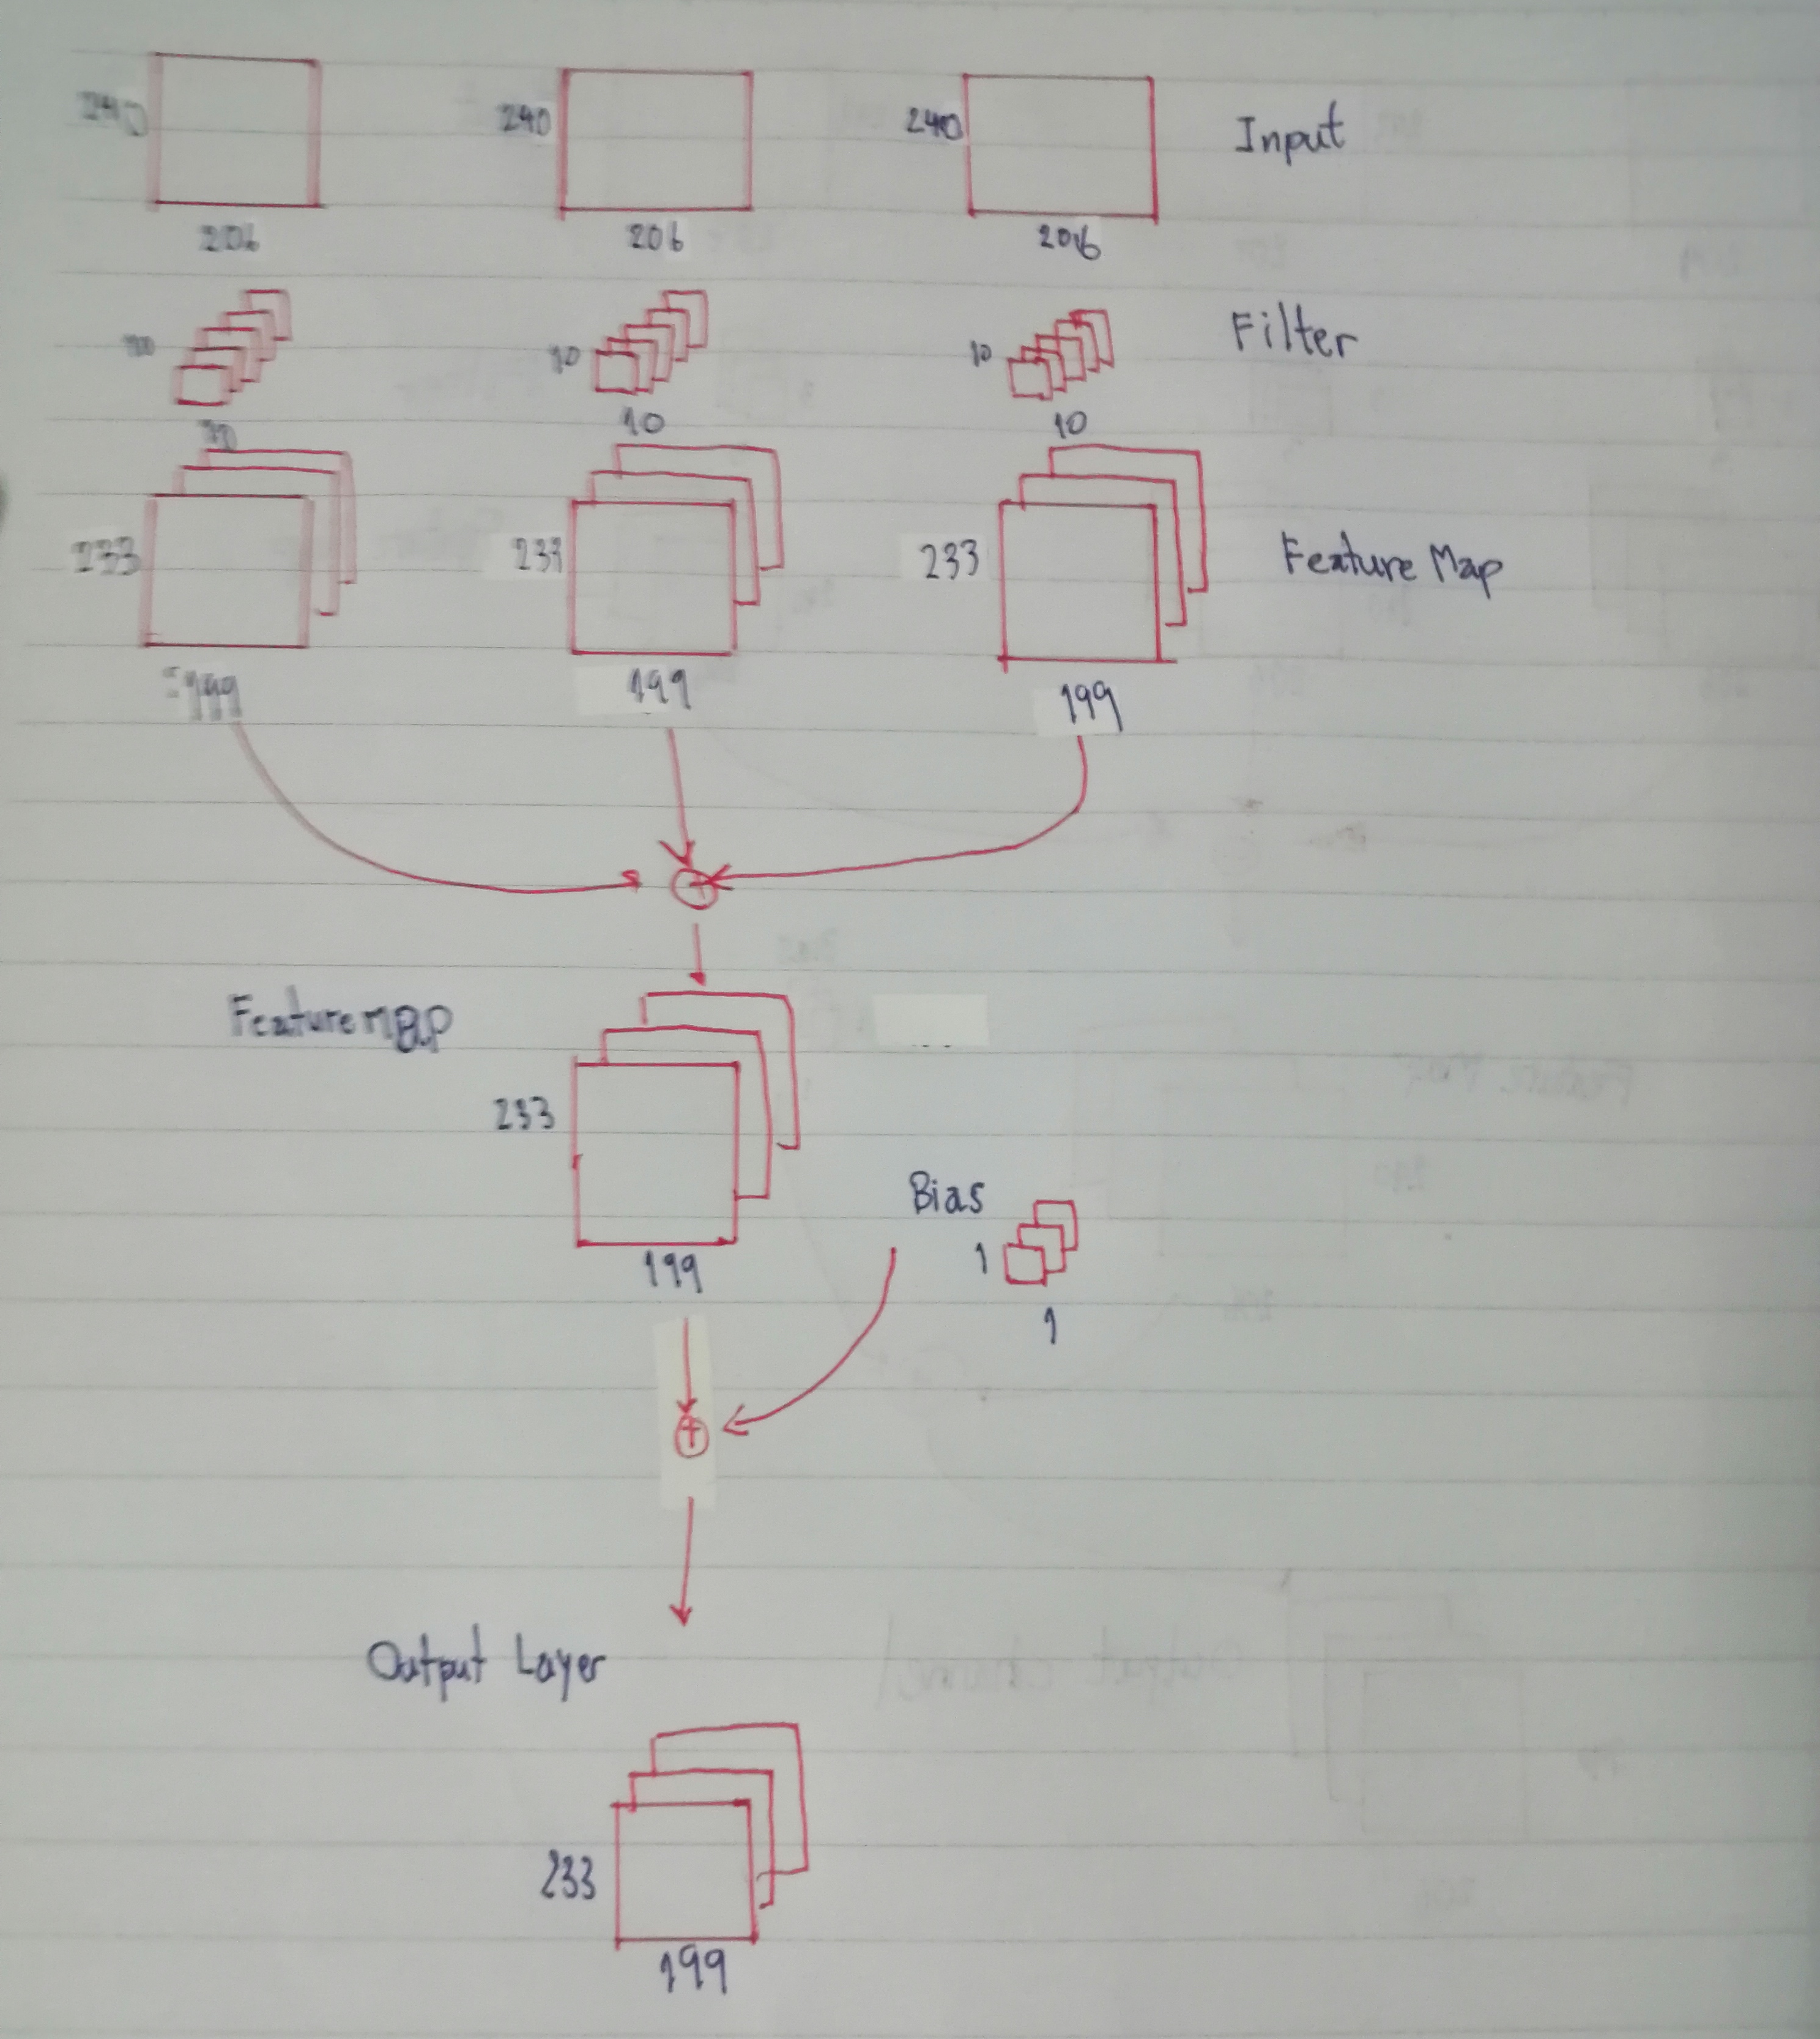 240 240 240 Input
206 206 206
10 10 10 Filter
10 10
233 233 233 Feature Map
199 199 199
Feature map
233
199
Bias
1
1
Output Layer
233
199